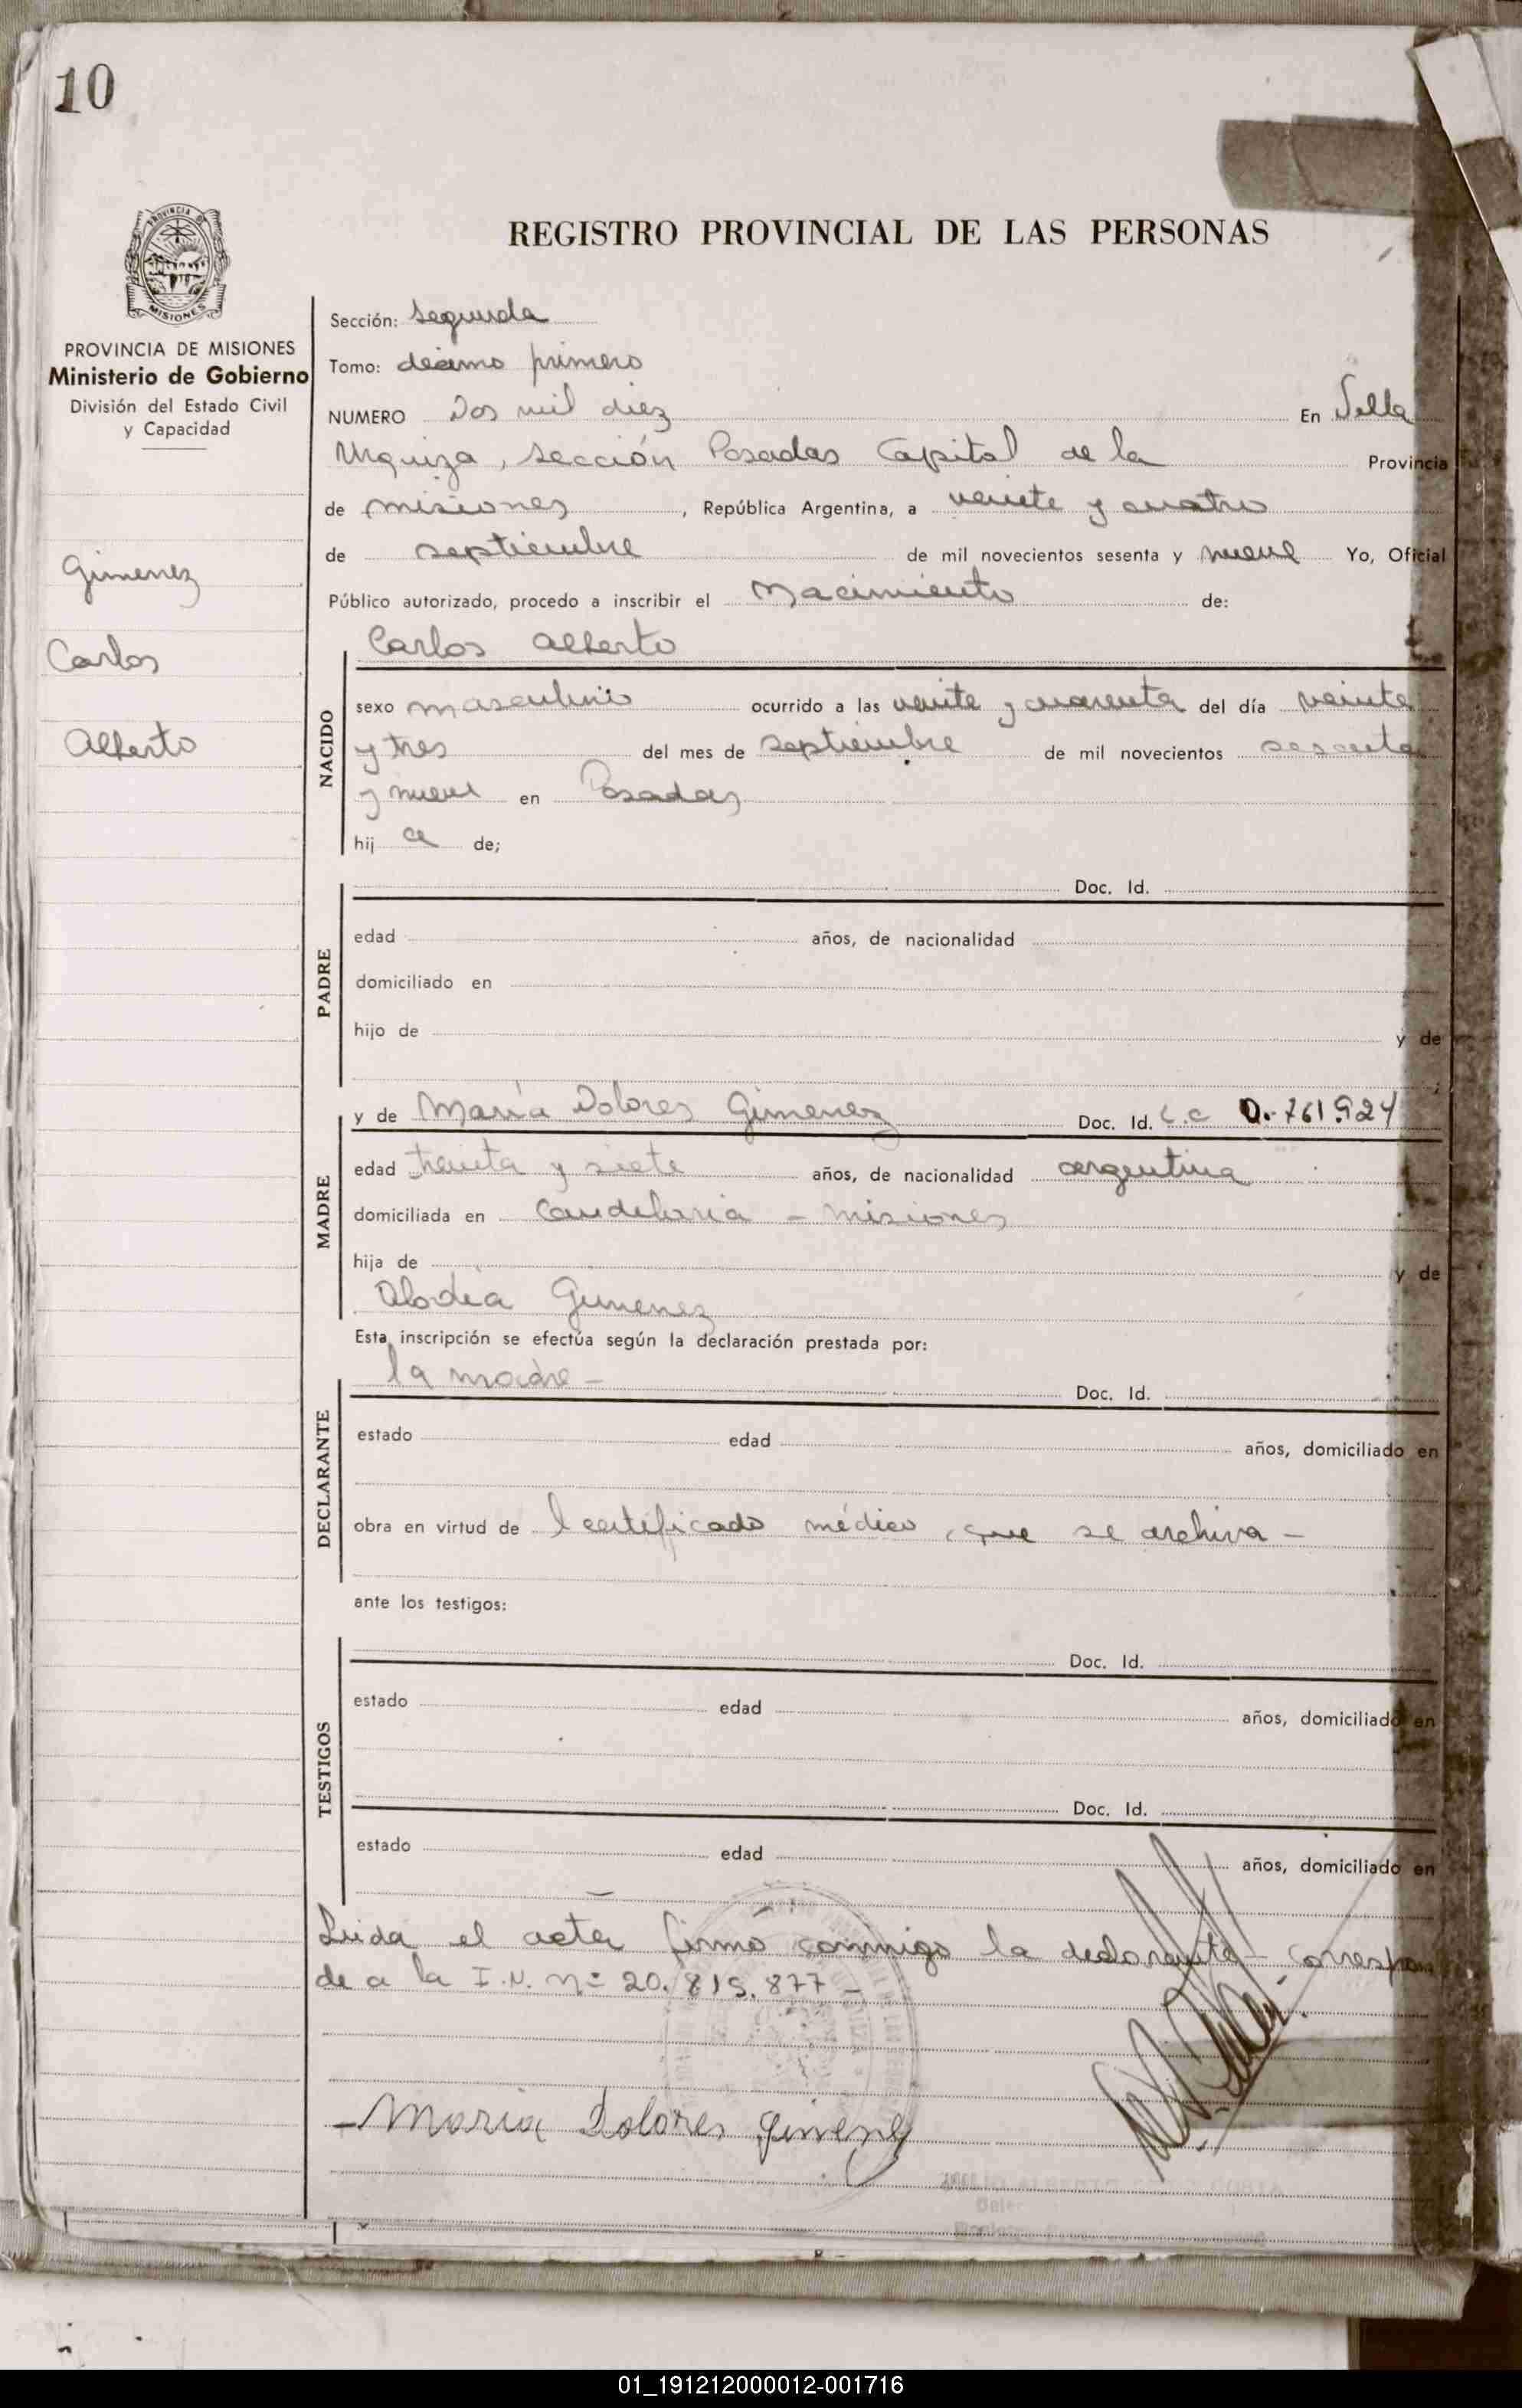 10
PROVINCIA DE MISIONES
REGISTRO PROVINCIAL DE LAS PERSONAS
PROVINCIA DE MISIONES
Ministerio de Gobierno
División del Estado Civil
y Capacidad
Gimenez
Carlos
Alberto
Sección: segunda
Tomo: décimo primero
NUMERO Dos mil diez En Villa
Urquiza, sección Posadas Capital de la Provincia
de misiones, República Argentina, a veinte y cuatro
de septiembre de mil novecientos sesenta y nueve Yo, Oficial
Público autorizado, procedo a inscribir el Nacimiento de:
Carlos Alberto
NACIDO
sexo masculino ocurrido a las veinte y cuarenta del día veinte
y tres del mes de septiembre de mil novecientos sesenta
y nueve en Posadas
hij a de;
PADRE
Doc. Id.
edad años, de nacionalidad
domiciliado en
hijo de y de
MADRE
y de María Dolores Gimenez Doc. Id. L.C 0.761.924
edad treinta y siete años, de nacionalidad argentina
domiciliada en Candelaria - Misiones
hija de y de
Alodia Gimenez
Esta inscripción se efectúa según la declaración prestada por:
DECLARANTE
la madre - Doc. Id.
estado edad años, domiciliado en
obra en virtud de l certificado médico, que se archiva -
ante los testigos:
TESTIGOS
Doc. Id.
estado edad años, domiciliado en
Doc. Id.
estado edad años, domiciliado en
Leida el acta firmó conmigo la declarante - correspon
de a la I.N. Nº 20.815.877 -
- Maria Dolores Gimenez
01_191212000012-001716